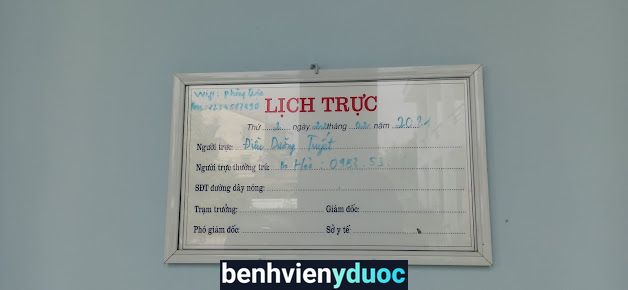 Wifi: Phòng
LỊCH TRỰC
Thứ ngày tháng năm 202
Người trực: Điều Dưỡng Tuyết
Người trực thường trú: Hòa: 0982.53
SĐT đường dây nóng:
Trạm trưởng: Giám đốc:
Phó giám đốc: Sở y tế:
benhvienyduoc